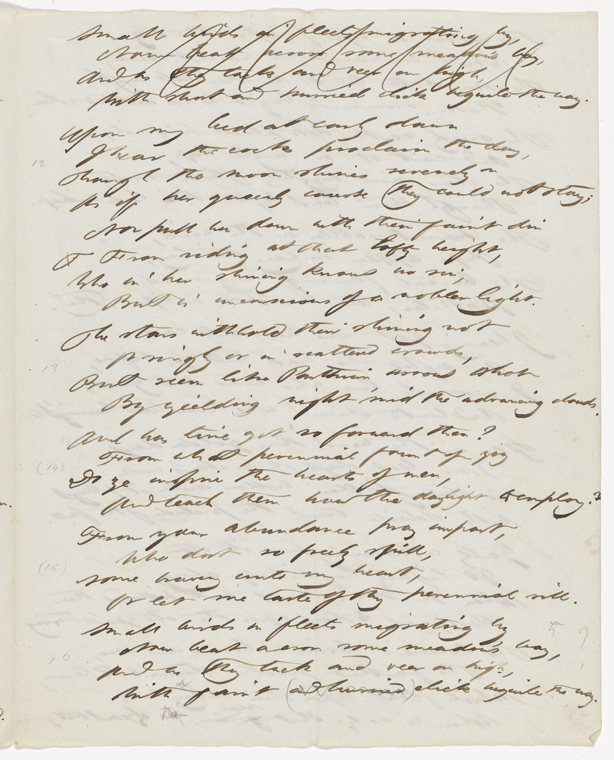 Small birds in fleets migrating by,
Now beat across some meadow's bay,
And as they tack and veer on high,
With short and hurried click beguile the way.
Upon my bed at early dawn
12
I hear the cocks proclaim the day,
Though the moon shines serenely on
As if her queenly course they could not stay;
Nor pull her down with their faint din
From riding at that lofty height,
Who in her shining knows no sin,
But is unconscious of a nobler light.
The stars withhold their shining not
13
Or singly or in scattered crowds,
But seem like Parthian arrows shot
By yielding night mid the advancing clouds.
And has time got so forward then?
(14)
From what perennial fount of joy
Do ye inspire the hearts of men,
And teach them how the daylight to employ?
From your abundance pray impart,
Who dost so freely spill,
(15)
Some bravery unto my heart,
Or let me taste of thy perennial rill.
Small birds in fleets migrating by
Now beat across some meadow's bay,
16
And as they tack and veer on high,
With faint (and hurried) click beguile the way.